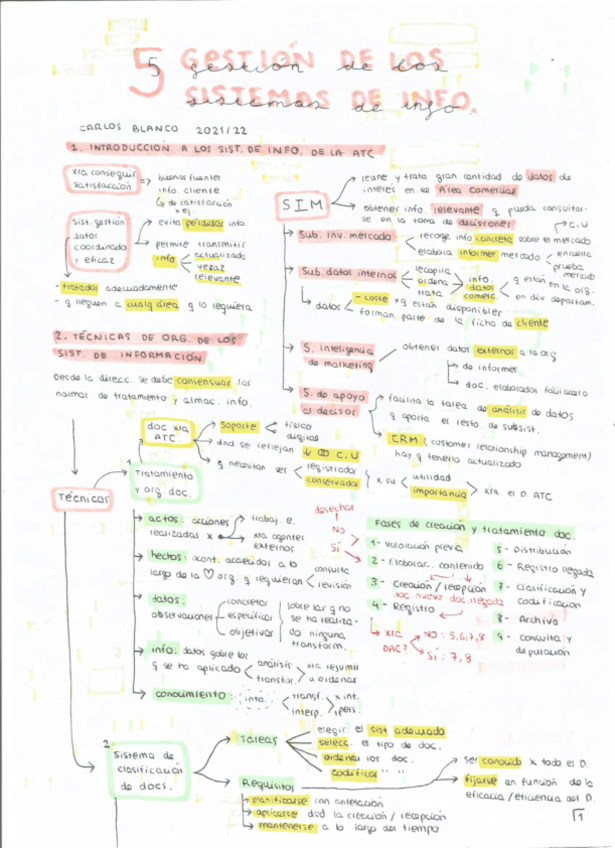 5 GESTIÓN DE LOS
SISTEMAS DE INFO.
gestión de los
sistemas de info
CARLOS BLANCO 2021/22
1. INTRODUCCIÓN A LOS SIST. DE INFO. DE LA ATC
xra conseguir
satisfacción
=> buenas fuentes
info. cliente
↳ de satisfacción
x ej
sist. gestión
datos
coordinado
y eficaz
→ evita pérdidas info
→ permite transmitir
info
actualizada
veraz
relevante
- tratados adecuadamente
- q lleguen a cualq área q lo requiera
SIM
→ reúne y trata gran cantidad de datos de
interés en el Área comercial
→ obtener info. relevante q pueda consultar-
se en la toma de decisiones
↳ C.U
→ Sub. inv. mercado
→ recoge info concreta sobre el mercado
→ elabora informes mercado
encuesta
prueba
mercado
→ Sub. datos internos
recopila
ordena
trata
info.
datos
comerc.
q están en la org.
en dif departam.
↳ datos
- coste xq están disponibles
forman parte de la ficha de cliente
→ S. inteligencia
de marketing
obtener datos externos a la org
→ de informes
→ doc. elaborados
→ S. de apoyo
al decisor
→ facilita la tarea de análisis de datos
y aporta el resto de subsist.
→ CRM (customer relationship management)
hay q tenerlo actualizado
2. TÉCNICAS DE ORG. DE LOS
SIST. DE INFORMACIÓN
Desde la direcc. se debe consensuar las
normas de tratamiento y almac. info.
Técnicas
1.
Tratamiento
y org. doc.
doc xra
ATC.
→ soporte
físico
digital
→ dnd se reflejan ↓ C.U
→ q necesitan ser
registrados
conservados
x su
utilidad
importancia
xra el D. ATC
→ actos: acciones
realizadas x
trabaj. e.
xra agentes
externos
→ hechos: acont. acaecidos a lo
largo de la ♡ org. q requieran
consulta
revisión
→ datos:
observaciones
concretas
específicas
objetivas
sobre las q no
se ha realiza-
do ninguna
transform.
→ info: datos sobre los
q se ha aplicado
análisis
transfor.
xra resumir
u ordenar
→ conocimiento: info.
transf.
interp.
x int.
pers.
Fases de creación y tratamiento doc.
desechar
NO
SÍ
1- Valoración previa
2- Elaborac. contenido
3- Creación / recepción
doc. nuevo doc. llegada
4- Registro
→ xra
DAC?
NO: 5,6,7,8
SÍ: 7,8
5- Distribución
6- Registro llegada
7- Clasificación y
codificación
8- Archivo
9- Consulta y
depuración
2.
Sistema de
clasificación
de docs.
Tareas
elegir el sist adecuado
selecc. el tipo de doc.
ordenar los doc.
codificar " "
Requisitos
→ planificarse con antelación
→ aplicarse dsd la creación / recepción
→ mantenerse a lo largo del tiempo
→ ser conocido x todo el D.
→ fijarse en función de la
eficacia / eficiencia del D.
1